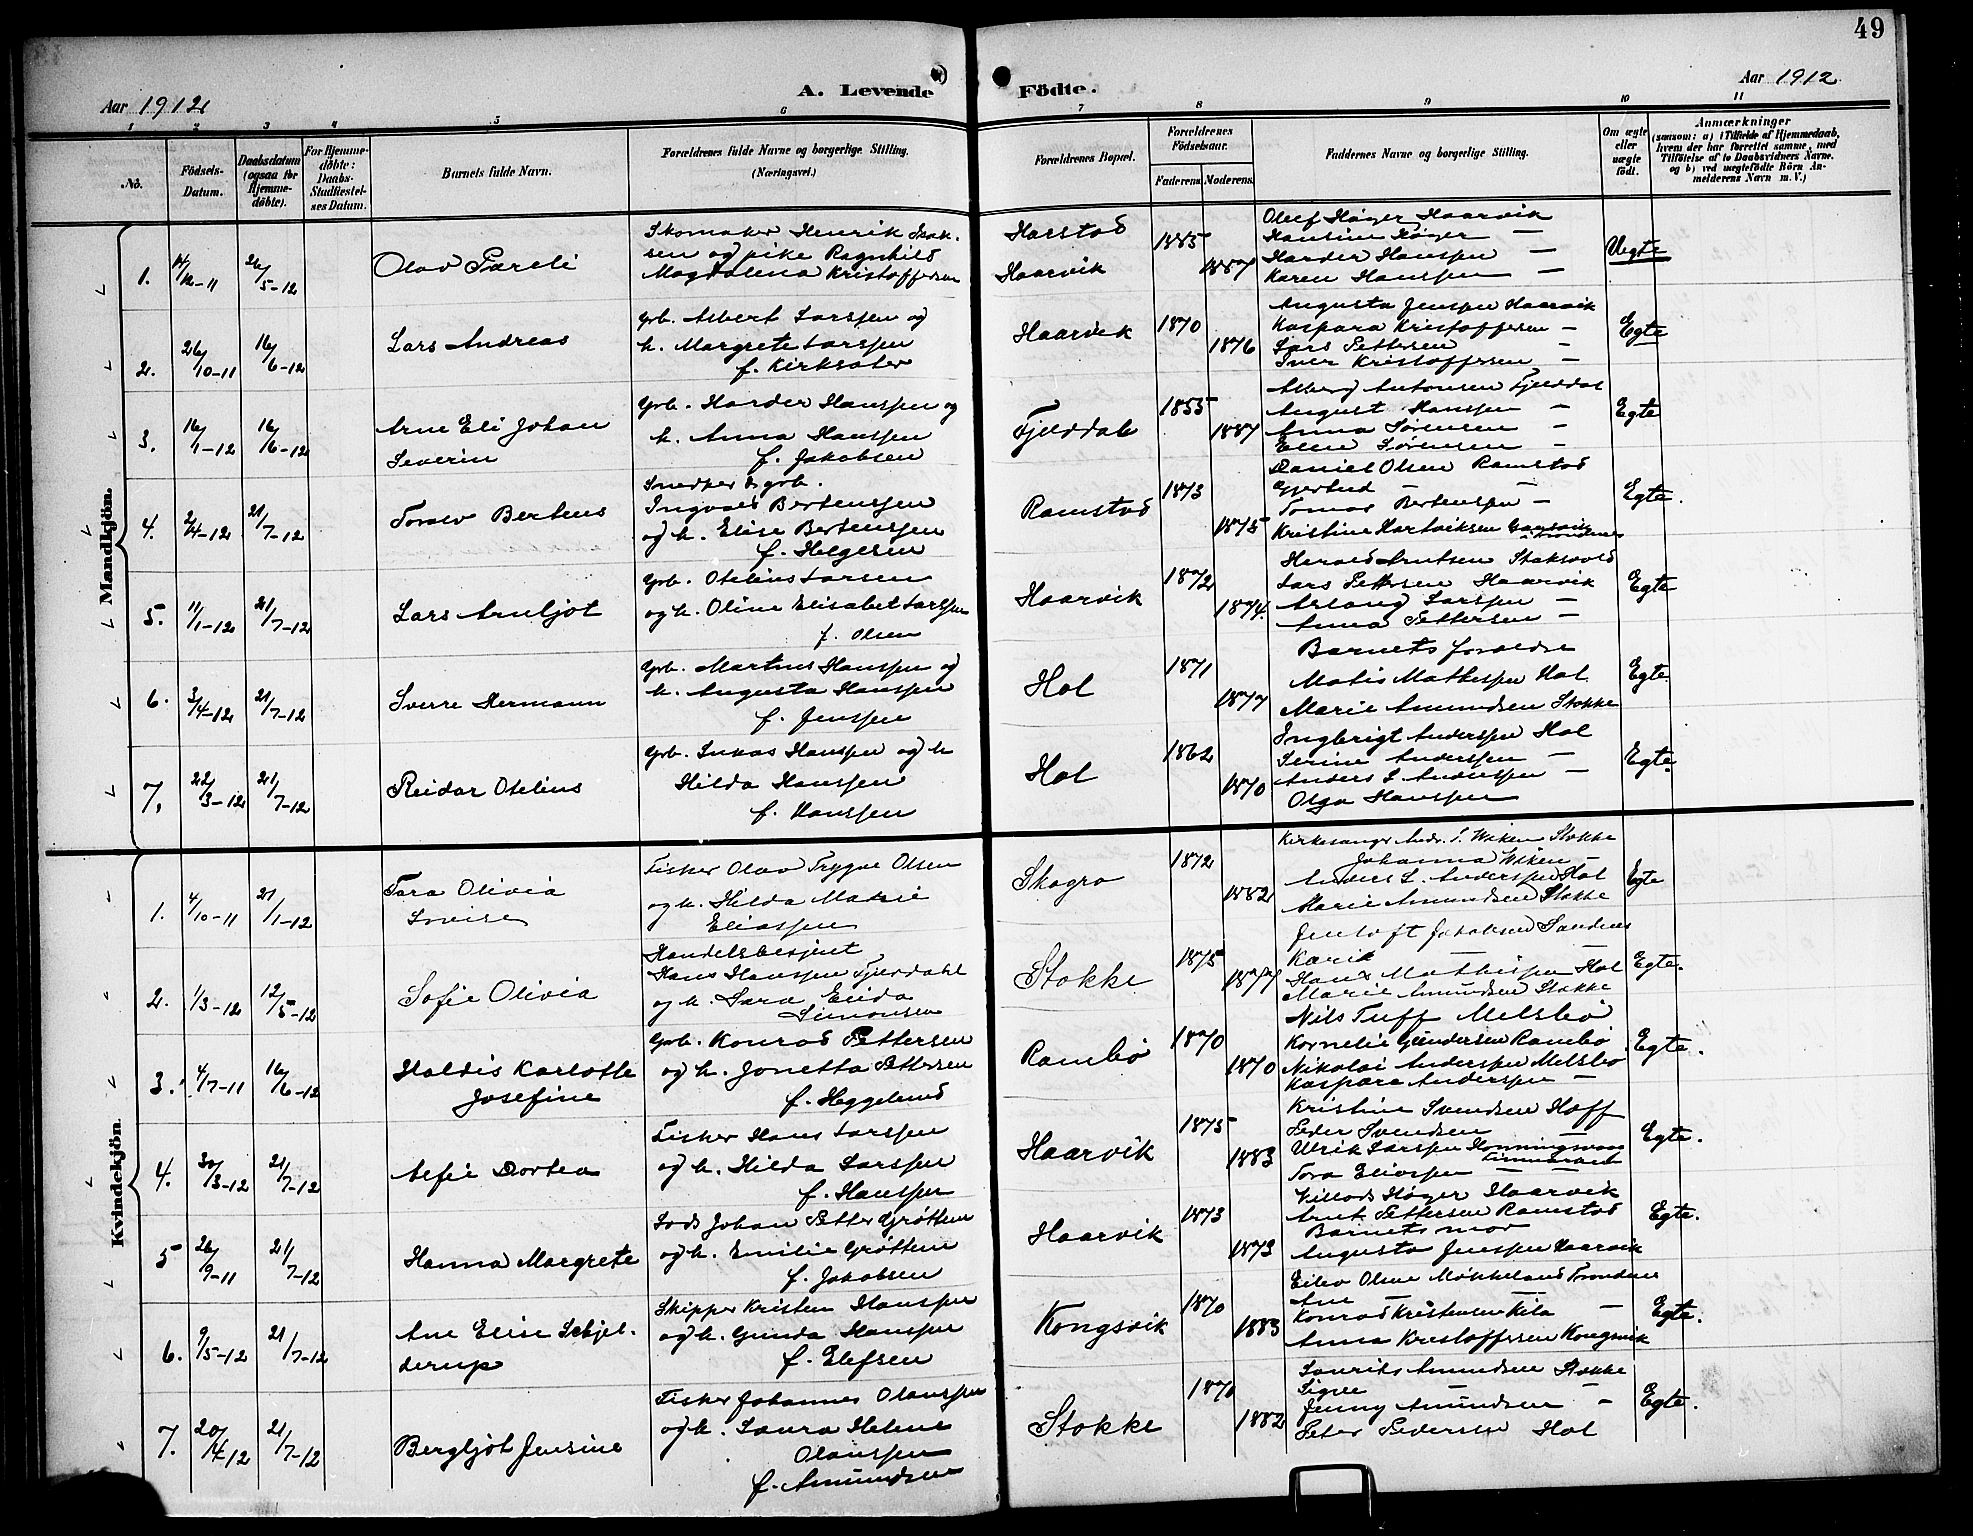 49
Aar 1912
A. Levende
Födte.
Aar 1912
1 2 3 4 5 6 7 8 9 10 11
No.
Födsels-
Datum.
Daabsdatum
(ogsaa for
Hjemme-
döbte).
For Hjemme-
döbte:
Daabs-
Stadfæstel-
ses Datum.
Barnets fulde Navn.
Forældrenes fulde Navne og borgerlige Stilling.
(Næringsvei.)
Forældrenes Bopæl.
Forældrenes
Födselsaar.
Faderens. Moderens.
Faddernes Navne og borgerlige Stilling.
Om ægte
eller
uægte
födt.
Anmærkninger
(saasom: a) i Tilfælde af Hjemmedaab,
hvem der har forrettet samme, med
Tilföielse af to Daabsvidners Navne,
og b) ved uægtefödte Börn An-
melderens Navn m. V.)
Mandkjön.
1. 14/12-11 26/5-12
Olav Pareli
Skomaker Henrik Isak-
sen og pike Ragnhild
Magdalena Kristoffersen
Harstad
Haarvik
1885
1887
Oluf Høyer Haarvik
Hansine Høyer —
Harder Hanssen —
Karen Hanssen —
Uegte
2. 26/10-11 16/6-12
Lars Andreas
Grb. Albert Larssen og
h. Margrete Larssen
f. Kirksæter
Haarvik
1870
1876
Augusta Jenssen Haarvik
Kaspara Kristoffersen —
Lars Pettersen —
Iver Kristoffersen —
Egte
3. 16/1-12 16/6-12
Arne Eli Johan
Severin
Grb. Harder Hanssen og
h. Anna Hanssen
f. Jakobsen
Fjelddal
1855
1887
Antonsen Fjelddal
August Hanssen —
Anna Sørensen —
Eline Sørensen —
Egte
4. 2/4-12 21/7-12
Toralv Bertens
Snedker & grb.
Ingvald Bertenssen
og h. Elise Bertenssen
f. Helgesen
Ramstad
1873
1875
Daniel Olsen Ramstad
Gjertrud — —
Tomas Bertenssen —
Kristine Hartviksen Gausvik
Trondenes
Egte.
5. 11/1-12 21/7-12
Lars Arnljot
Grb. Otelius Larsen
og h. Oline Elisabet Larssen
f. Olsen
Haarvik
1872
1874.
Herold Arntsen Staksvold
Lars Pettersen Haarvik
Erlang Larssen —
Anna Pettersen —
Egte
6. 3/4-12 21/7-12
Sverre Hermann
Grb. Martines Hanssen og
h. Augusta Hanssen
f. Jenssen
Hol
1871
1877
Barnets foreldre
Matis Mathissen Hol
Marie Amundsen Stokke
Egte.
7. 22/3-12 21/7-12
Reidar Otelius
Grb. Lukas Hanssen og h
Hilda Hanssen
f. Hanssen
Hol
1862
1870
Ingbrigt Anderssen Hol
Serine Anderssen —
Anders L. Anderssen —
Olga Hanssen
Egte.
Kvindekjön.
1. 4/10-11 21/1-12
Tora Olivia
Lovise
Fisker Olav Trygve Olsen
og h. Hilda Marie
Eliassen
Skogro
1872
1882
Kirkesanger Andr. S. Wiken Stokke
Johanna Wiken —
Anders L. Anderssen Hol
Marie Amundsen Stokke
Egte
2. 1/3-12 12/5-12
Sofie Olivia
Handelsbetjent
Hans Hanssen Fjelddahl
og h. Sara Elida
Simonsen
Stokke
1875
1877
Jentoft Jakobsen Sandnes
Karik —
Hans Mathissen Hol
Marie Amundsen Stokke
Egte.
3. 4/7-11 16/6-12
Haldis Karlotte
Josefine
Grb. Konrad Pettersen
og h. Jonetta Pettersen
f. Heggelund
Rambø
1870
1870
Nils Tuff Melsbø
Kornelie Gundersen Rambø
Nikolai Anderssen Melsbø
Kaspara Anderssen —
Egte.
4. 30/3-12 21/7-12
Alfie Dortea
Fisker Hans Larssen
og h. Hilda Larssen
f. Hanssen
Haarvik
1875
1883
Kristine Svendsen Hoff
Peder Svendsen —
Ulrik Larssen Honningsvaag
Finmarken
Tora Eliassen —
Egte.
5 26/9-11 21/7-12
Hanna Margrete
Lods Johan Petter Grøttum
og h. Emilie Grøttum
f. Jakobsen
Haarvik
1873
1873
Villads Høyer Haarvik
Arnt Pettersen Ramstad
Barnets mor
Augusta Jenssen Haarvik
Egte.
6. 9/5-12 21/7-12
Ane Elise Schjel-
derup
Skipper Kristen Hanssen
og h. Gunda Hanssen
f. Elefsen
Kongsvik
1870
1883
Eilev Olsen Møkkeland Trondenes
Ane — —
Konrad Kristensen Kila —
Anna Kristoffersen Kongsvik
Egte.
7. 20/4-12 21/7-12
Bergljot Jensine
Fisker Johannes Olaussen
og h. Laura Helene
Olaussen
f. Amundsen
Stokke
1870
1882
Laurits Amundsen Stokke
Signe
Jenny Amundsen —
Peter Pedersen Hol
Egte.